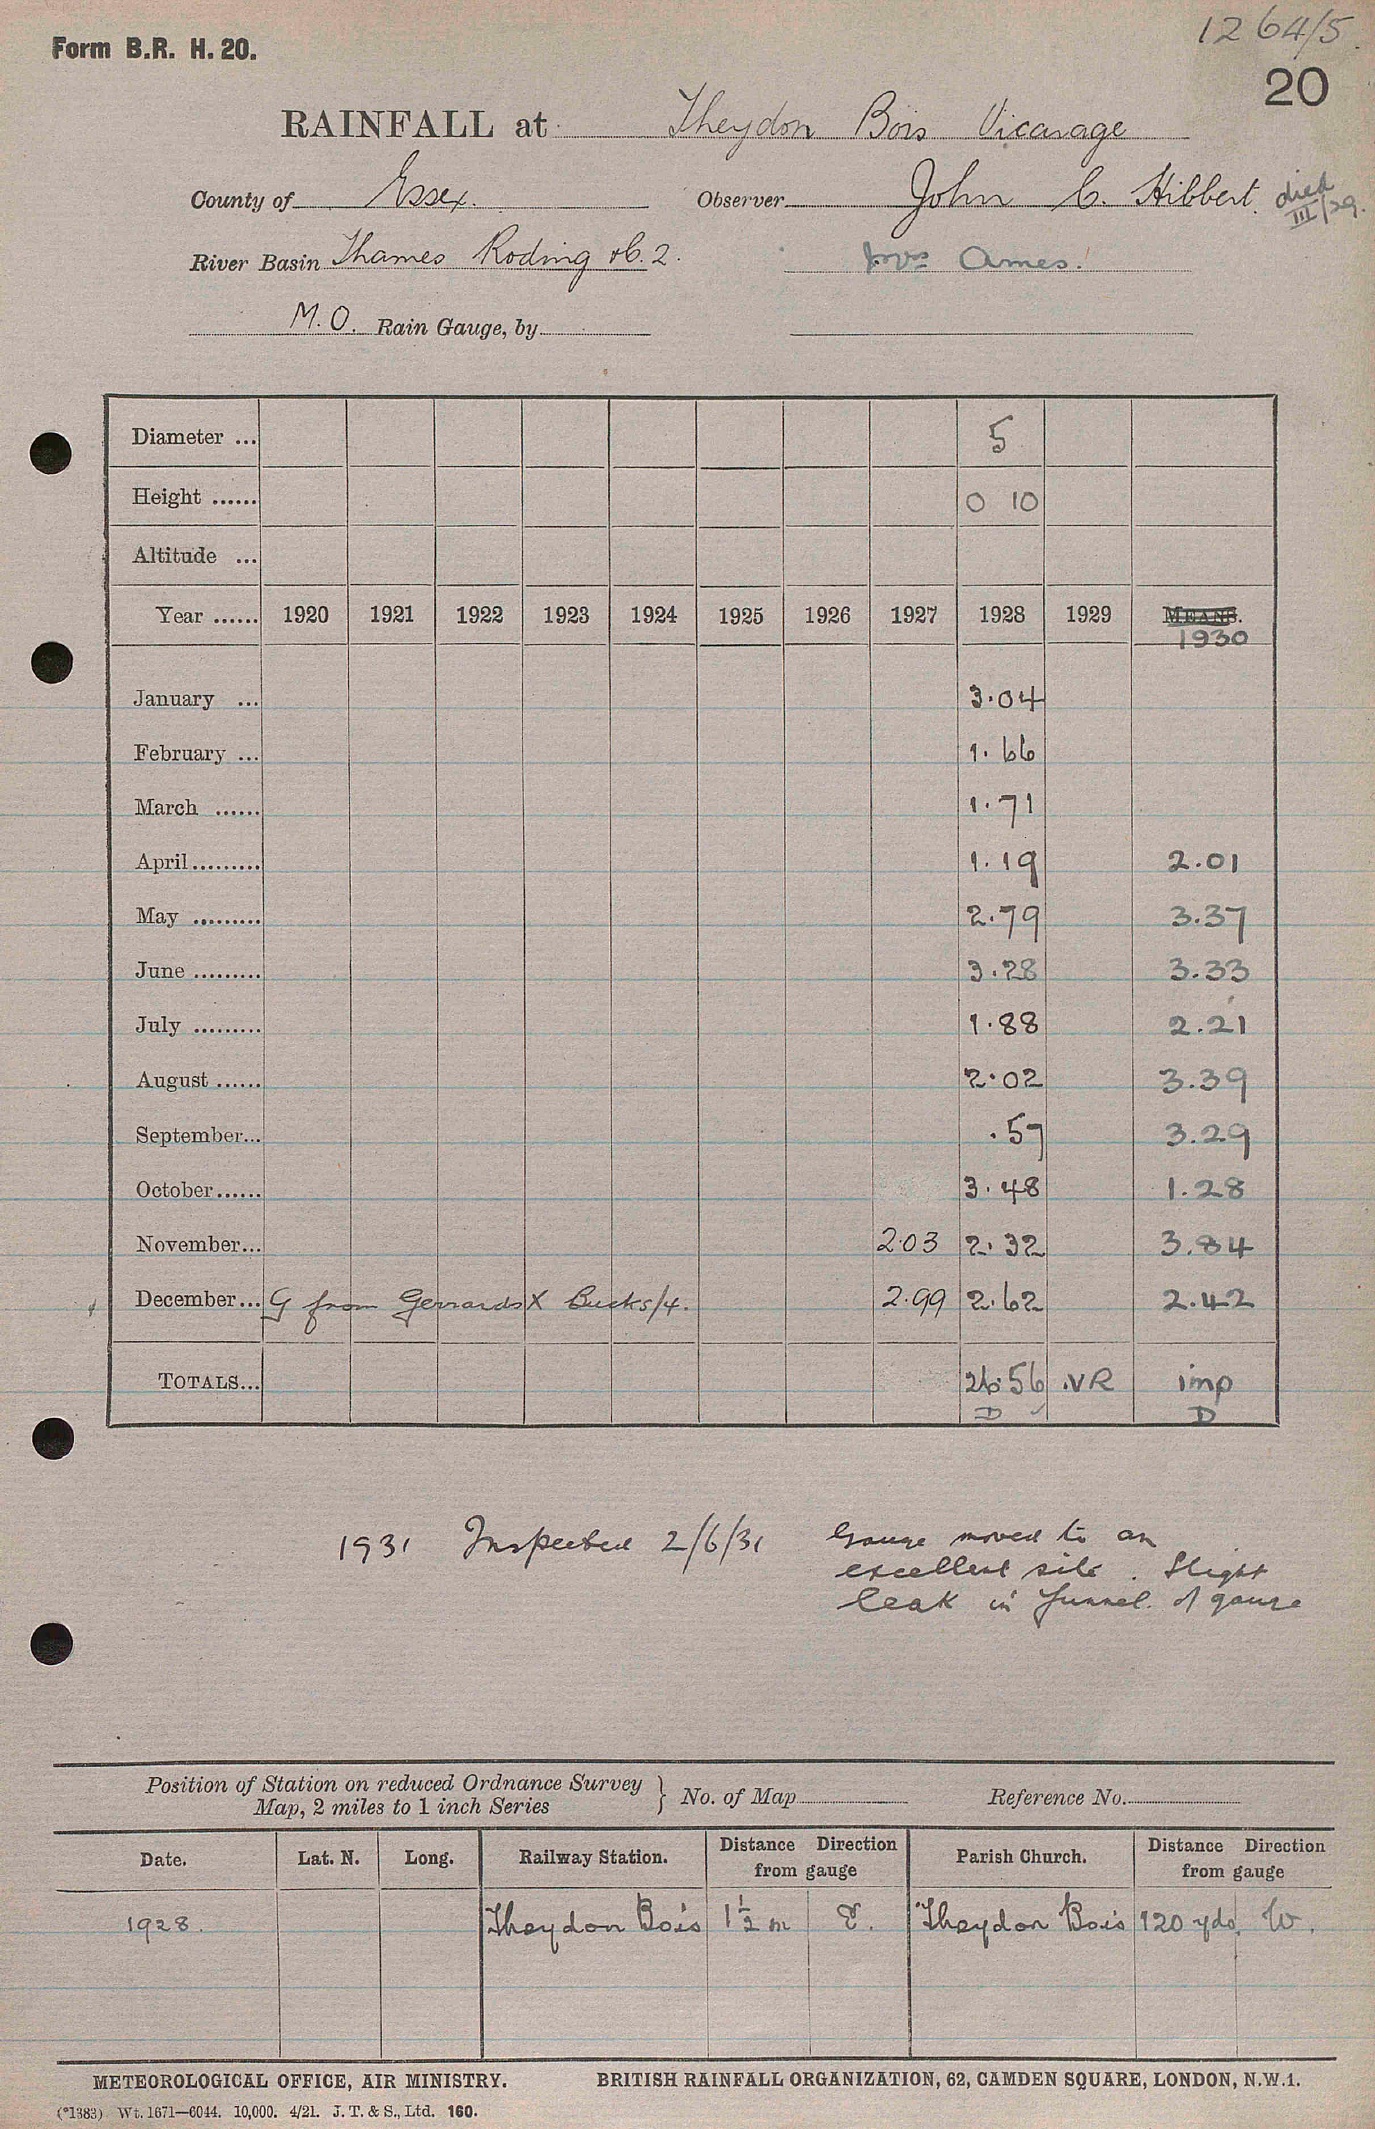 1264/5.
Form B.R. H. 20.
20
RAINFALL at Theydon Bois Vicarage
County of Essex. Observer John C. Hibbert. died III/29.
River Basin Thames Roding 2. Mrs Ames.
M.O. Rain Gauge, by
Diameter ... 5
Height ...... 0 10
Altitude ...
Year ...... 1920 1921 1922 1923 1924 1925 1926 1927 1928 1929 MEANS.
1930
January ... 3.04
February ... 1.66
March ...... 1.71
April......... 1.19 2.01
May ......... 2.79 3.37
June ......... 3.28 3.33
July ......... 1.88 2.21
August ...... 2.02 3.39
September... .57 3.29
October...... 3.48 1.28
November... 2.03 2.32 3.84
December... G from Gerrards X Bucks/4. 2.99 2.62 2.42
TOTALS... 26.56 .VR imp
D ✓ D
1931 Inspected 2/6/31 Gauge moved to an
excellent site. Slight
leak in funnel of gauge
Position of Station on reduced Ordnance Survey
Map, 2 miles to 1 inch Series } No. of Map Reference No.
Date. Lat. N. Long. Railway Station. Distance Direction from gauge Parish Church. Distance Direction from gauge
1928. Theydon Bois 1½ m E. Theydon Bois 120 yds. W.
METEOROLOGICAL OFFICE, AIR MINISTRY. BRITISH RAINFALL ORGANIZATION, 62, CAMDEN SQUARE, LONDON, N.W.1.
(*1383) Wt. 1671—6044. 10,000. 4/21. J. T. & S., Ltd. 160.